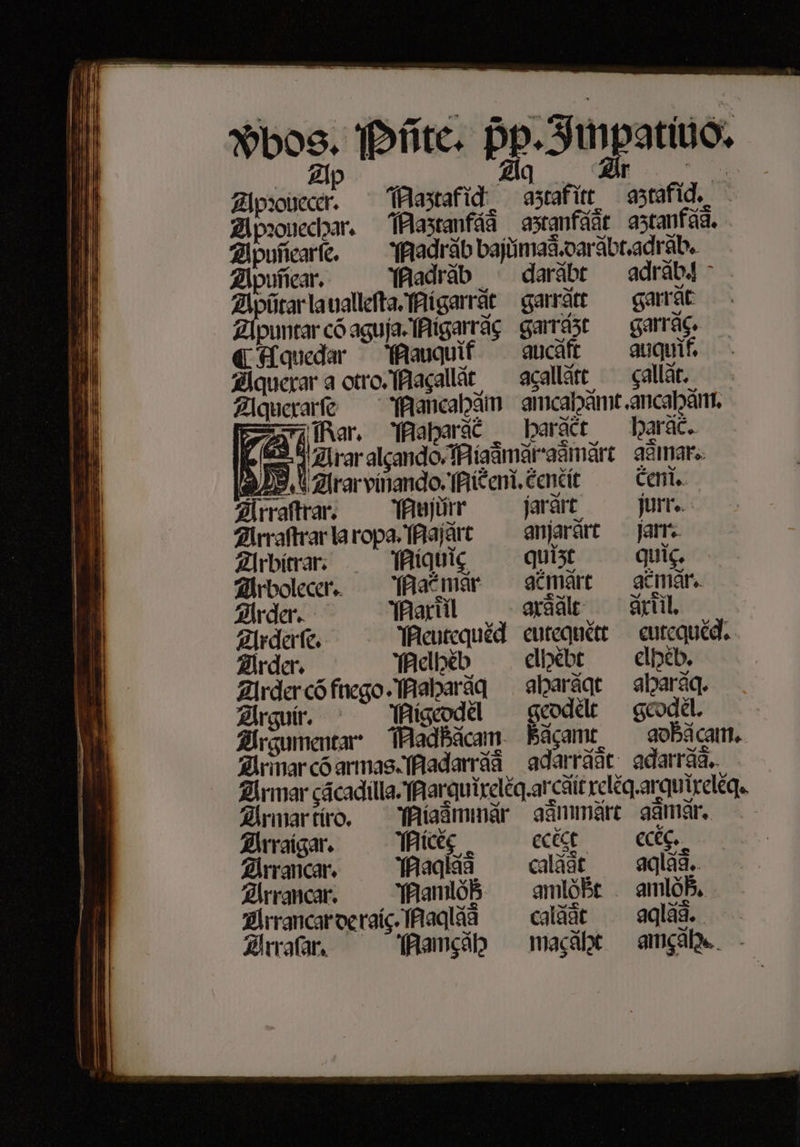 Vbos. Pñte. p̃p. Impatiuo.
Ap Aq Ar
Aprouecer. Nastafid astafitt astafid.
Aprouechar. Nastanfáâ astanfáât astanfáâ.
Apuñearse. Nadrâb bajûmaâ.darâbt.adrâb.
Apuñear. Nadrâb darâbt adrâb.
Apûtar la uallesta. Nigarrât garrâtt garrât
Apuntar có aguja. Nigarrâç garrâzt garrâç.
Aquedar Nauquif aucâft auquif.
Aquexar a otro. Naçallât açallâtt çallât.
Aquexarse Nancahâm amcahâmt.ancahâm.
Rar. Naharâċ harâċt harâċ.
Arar alçando. Niaâmâr aâmârt aâmar.
Arar vinando. Niċeni. ċenċit ċeni.
Arrastrar. Nujûrr jarârt jurr.
Arrastrar la ropa. Najârr anjarârt jarr.
Arbitrar. Niquiç quizt quiç.
Arbolecer. Naċmâr aċmârt aċmâr.
Arder. Naxîil axââlt âxîil.
Arderse. Neutequéd eutequétt eutequéd.
Arder. Nelhêb elhêbt elhêb.
Arder có fuego. Naharâq aharâqt aharâq.
Arguir. Nigeodêl geodêlt geodêl.
Argumentar Nadhâcam hâçamt adhâcam.
Armar có armas. Nadarrââ adarrâât adarrââ.
Armar çácadilla. Narquixelêq.arcâit xelêq.arquixelêq.
Armar tiro. Niaâmmâr aâmmârt aâmâr.
Arraigar. Nicêç ecêçt ecêç.
Arrancar. Naqlââ calâât aqlââ.
Arrancar. Namlôh amlôht amlôh.
Arrancar de raiç. Naqlââ calâât aqlââ.
Arrasar. Namçâh maçâht amçâh.